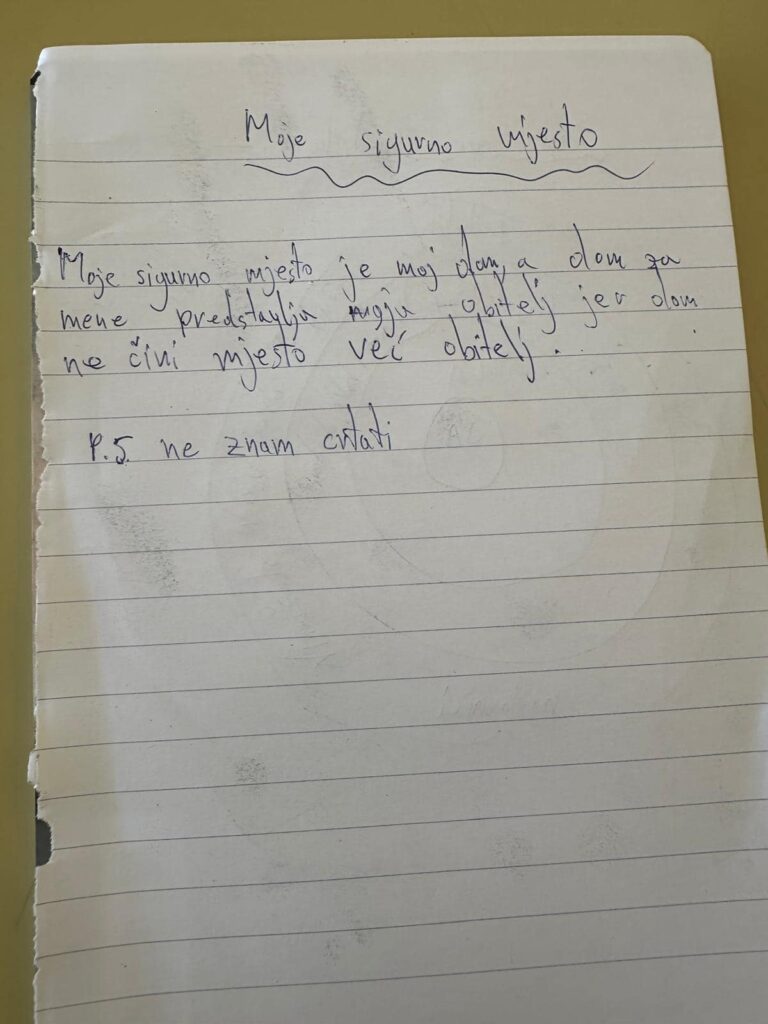 Moje sigurno mjesto
Moje sigurno mjesto je moj dom, a dom za
mene predstavlja moju obitelj jer dom
ne čini mjesto već obitelj.
P.S. ne znam crtati